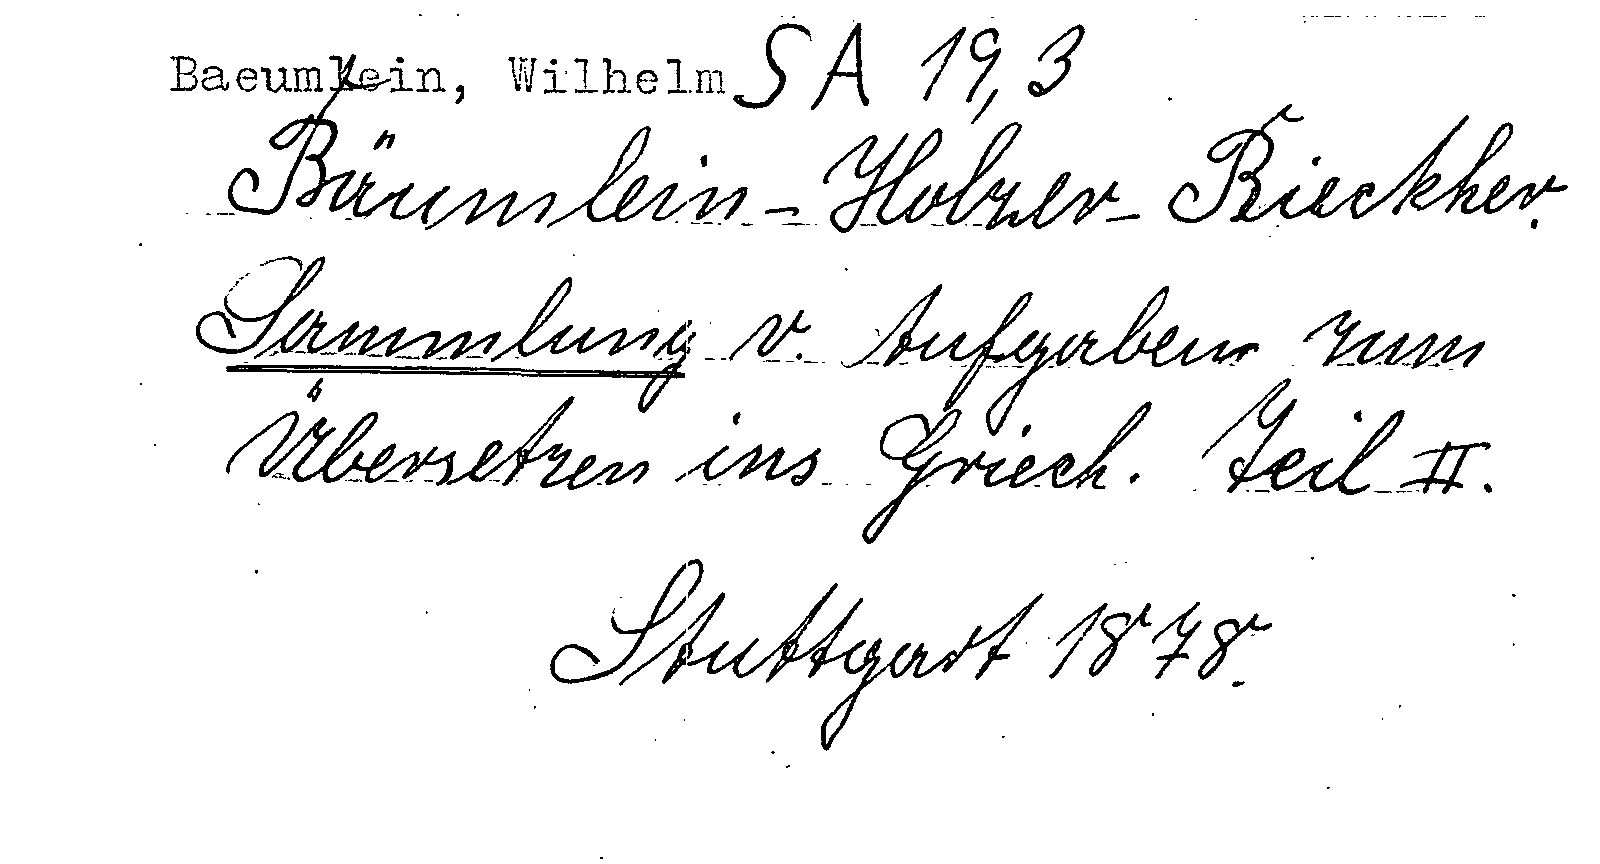 Baeumlein, Wilhelm SA 19,3
Bäumlein-Holzer-Rieckher.
Sammlung v. Aufgaben zum
Übersetzen ins Griech. Teil II.
Stuttgart 1878.